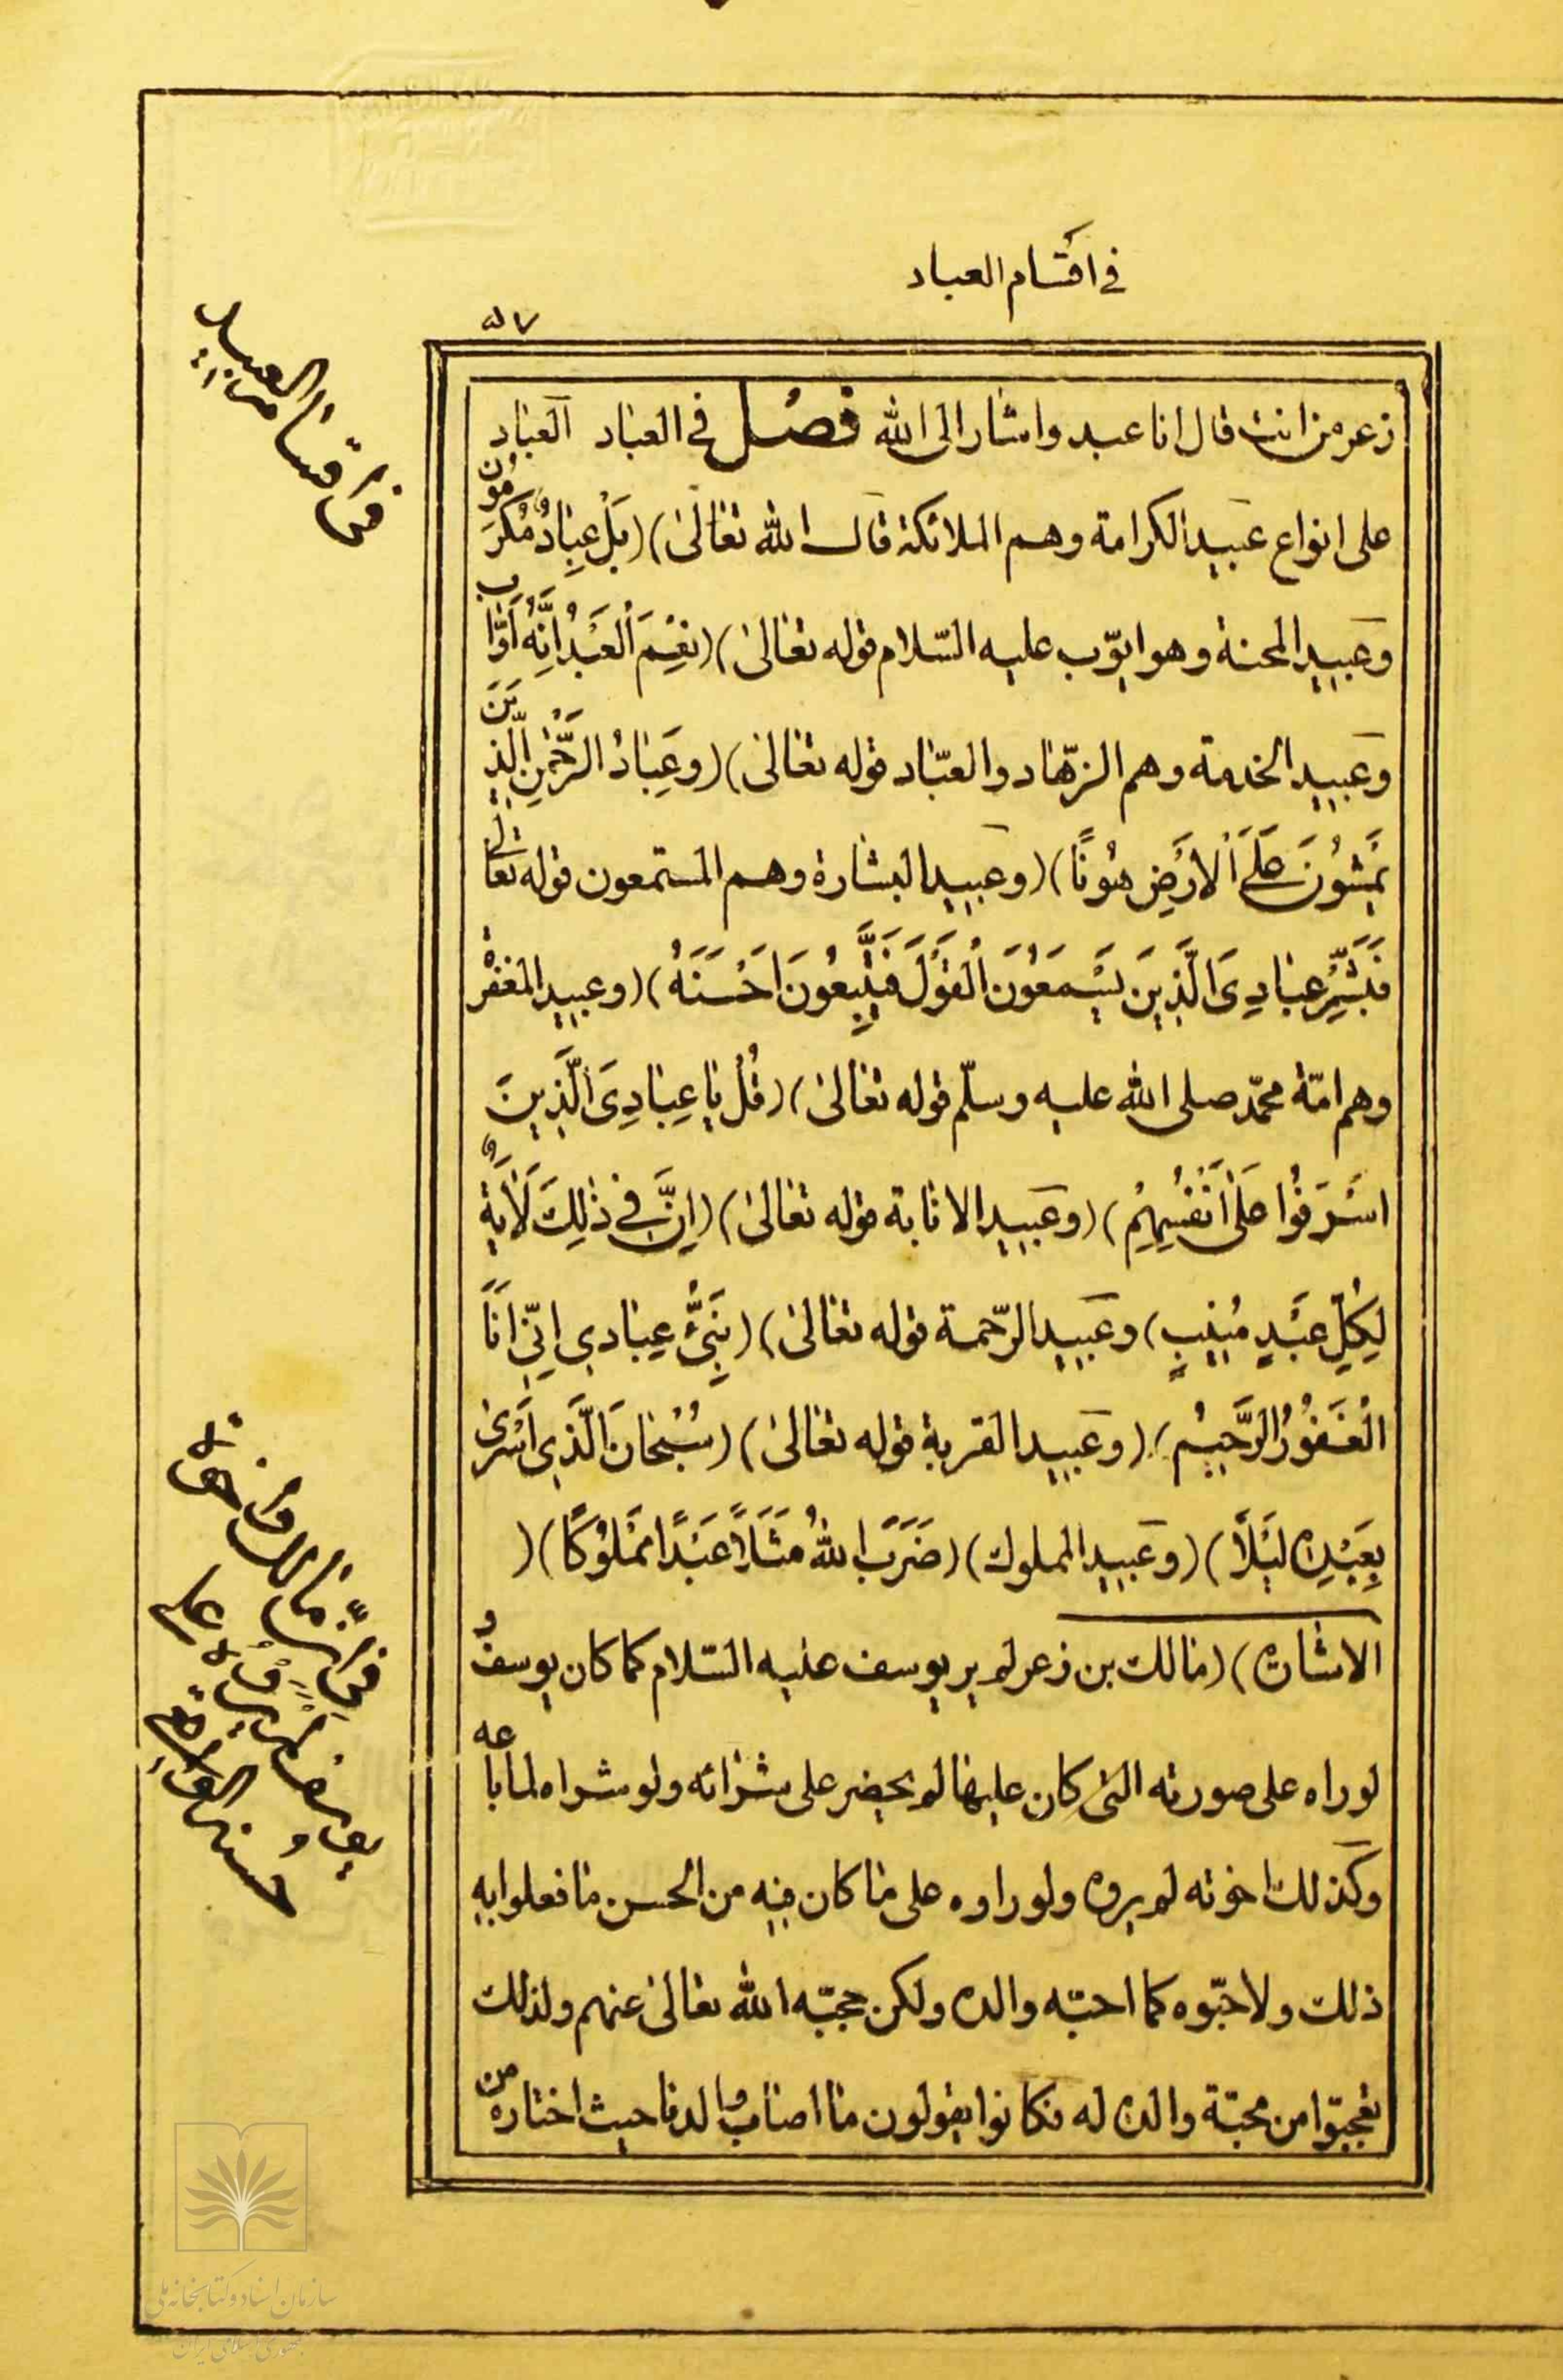 في اقسام العباد
٥٧
ذعر من انت قال انا عبد واشار الى الله فصل في العباد العباد
على انواع عبيد الكرامة وهم الملائكة قال الله تعالى) (بَلْ عِبادٌ مُكْرَمُونَ
وعبيد المحنة وهو ايّوب عليه السّلام قوله تعالى) (نِعْمَ الْعَبْدُ اِنَّهُ اَوّابٌ
وعبيد الخدمة وهم الزهّاد والعبّاد قوله تعالى) (وعِبادُ الرَّحْمٰنِ الَّذِينَ
يَمْشُونَ عَلَى الْاَرْضِ هَوْنًا) (وعبيد البشارة وهم المستمعون قوله تعالى
فَبَشِّرْ عِبادِيَ الَّذِينَ يَسْتَمِعُونَ الْقَوْلَ فَيَتَّبِعُونَ اَحْسَنَهُ) (وعبيد المغفرة
وهم امّة محمّد صلى الله عليه وسلّم قوله تعالى) (قُلْ يا عِبادِيَ الَّذِينَ
اَسْرَفُوا عَلٰى اَنْفُسِهِمْ) (وعبيد الانابة قوله تعالى) (اِنَّ في ذٰلِكَ لَاٰيَةً
لِكُلِّ عَبْدٍ مُنِيبٍ) وعبيد الرّحمة قوله تعالى) (نَبِّئْ عِبادي اِنّي اَنَا
الْغَفُورُ الرَّحِيمُ) (وعبيد القربة قوله تعالى) (سُبْحانَ الَّذي اَسْرٰى
بِعَبْدِهِ لَيْلًا) (وعبيد المملوك) (ضَرَبَ اللهُ مَثَلًا عَبْدًا مَمْلُوكًا) (
الاشارة) (مالك بن ذعر لم ير يوسف عليه السّلام كما كان يوسف و
لو راه على صورته التى كان عليها لم يحضر على شرائه ولو شراه لما باعه
وكذلك اخوته لم يروه ولو راوه على ما كان فيه من الحسن ما فعلوا به
ذلك ولاحبّوه كما احبّه والده ولكن حجبه الله تعالى عنهم ولذلك
تعجبّوا من محبّة والده له فكانوا يقولون ما اصاب والدنا حيث اختاره من
في اقسام العبيد
سازمان اسناد و کتابخانه ملی
جمهوری اسلامی ایران